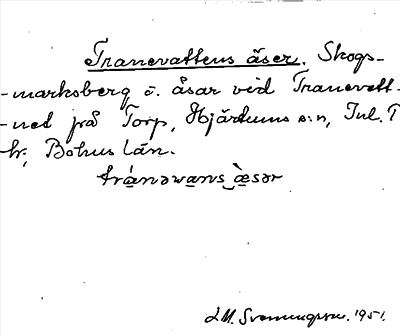 Tranevattens åser. Skogs-
-marksberg o. åsar vid Tranevatt-
-net på Torp, Hjärtums s:n, Inl. T
hr, Bohus Län.
tránəwans æ̀sər
J.M. Svenungsson. 1951.